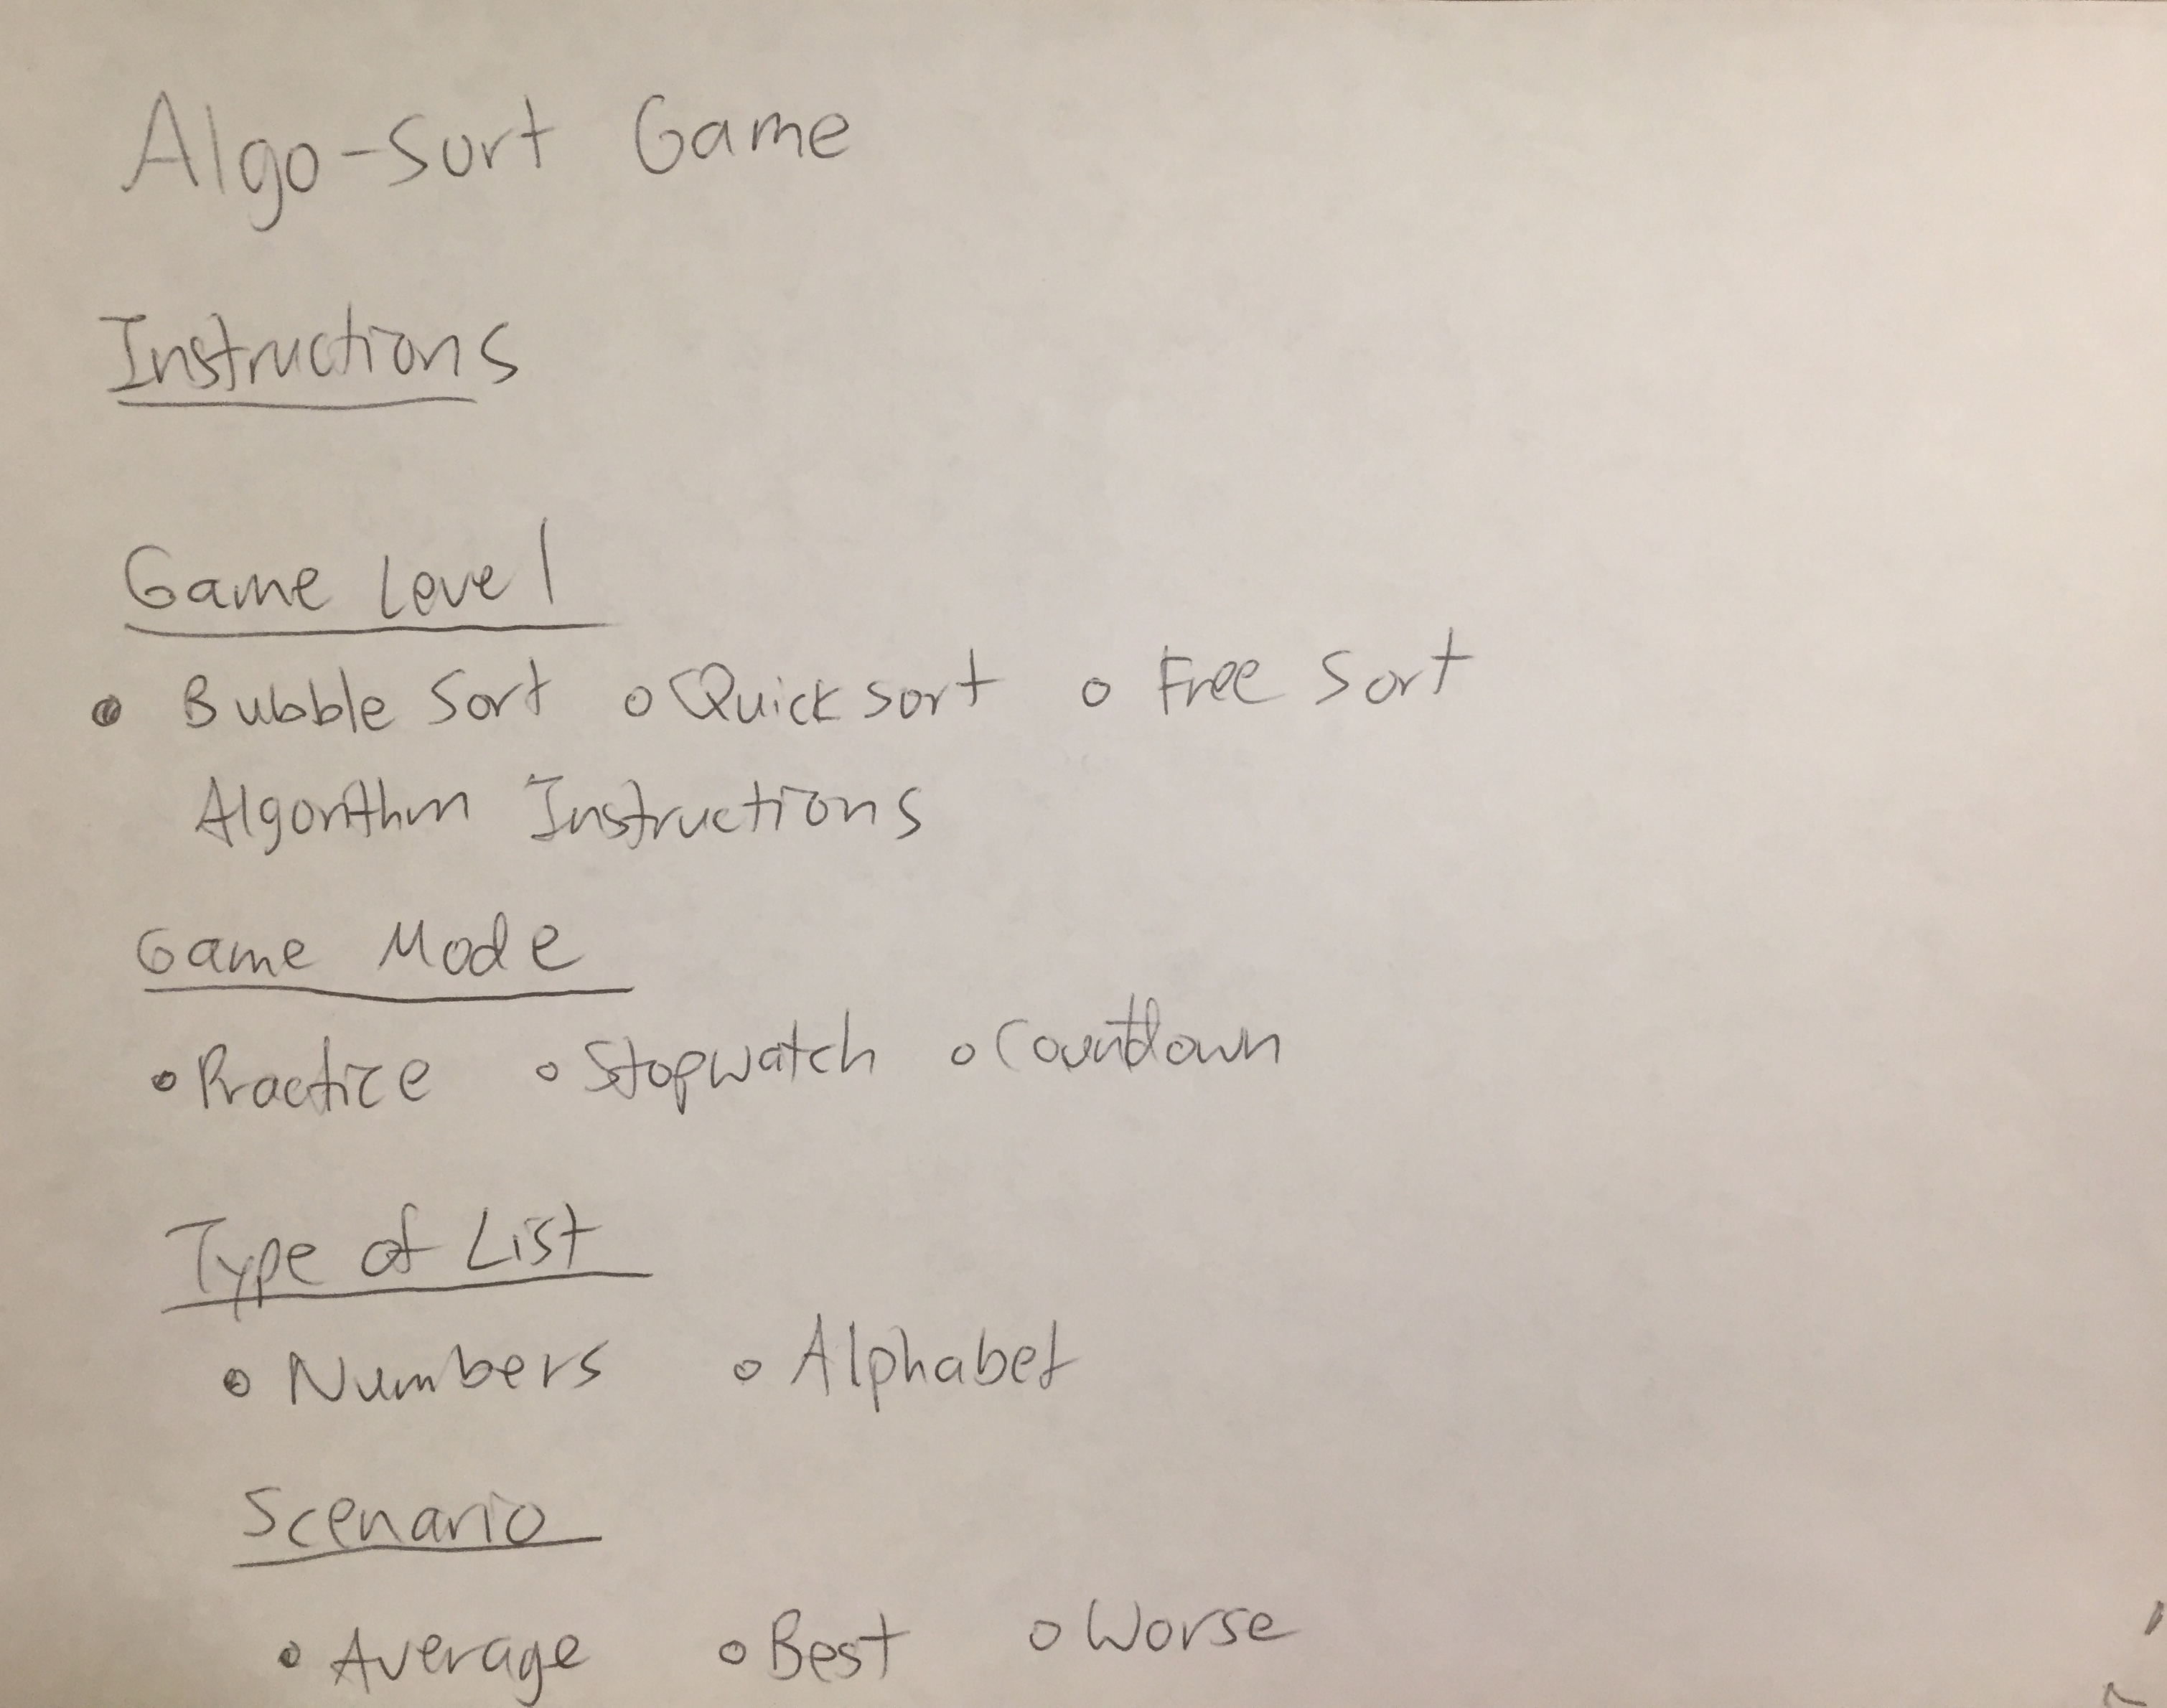 Algo-Sort Game
Instructions
Game Level
Bubble Sort Quick sort Free Sort
Algorithm Instructions
Game Mode
Practice Stopwatch Countdown
Type of List
Numbers Alphabet
Scenario
Average Best Worse